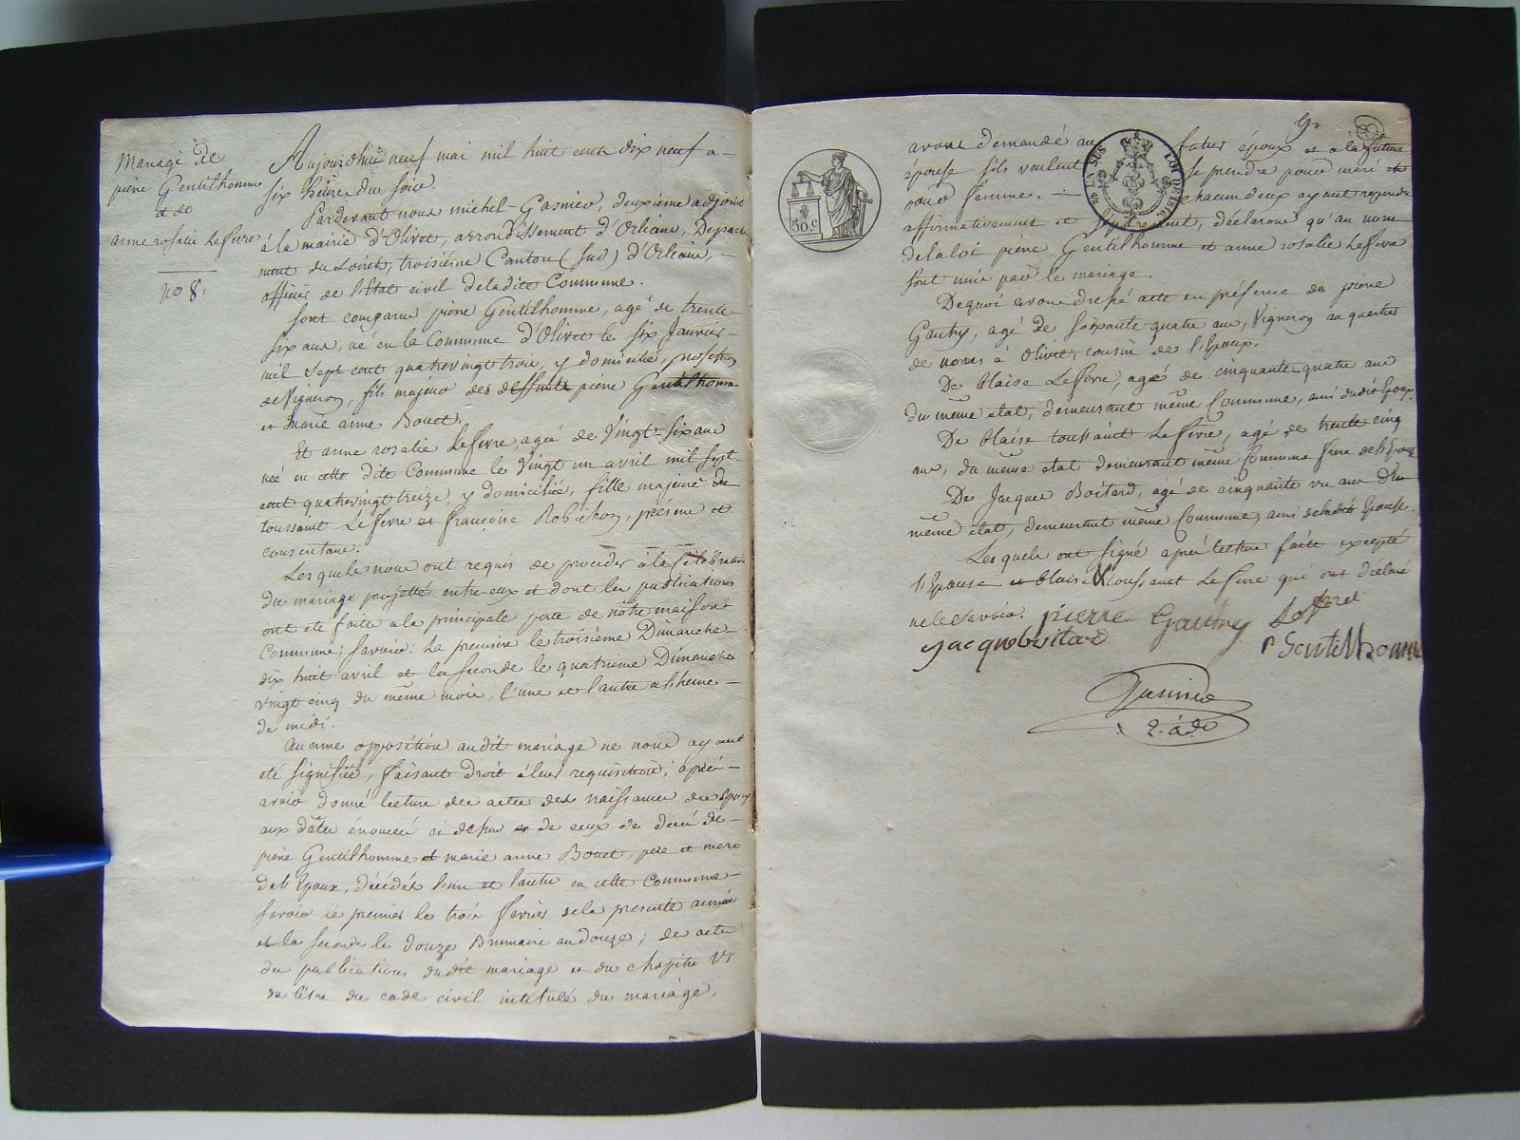 Mariage de
pierre Gentilhomme
et de
anne rosalie Lefevre
No 8.
Aujourd'hui neuf mai mil huit cent dix neuf a
six heures du soir
Pardevant nous michel Gasnier, deuxième adjoint
à la mairie d'Olivet, arrondissement d'Orléans, Departe
ment du Loiret, troisième Canton (sud) d'Orléans,
officier de l'Etat civil de ladite Commune.
Sont comparus pierre Gentilhomme, agé de trente
six ans, né en la Commune d'Olivet le six Janvier
mil sept cent quatrevingt trois, y domicilié, profession
de Vigneron, fils majeur des deffunts pierre Gentilhomme
et Marie anne Bouet.
Et anne rosalie Lefevre, agée de Vingt six ans
née en cette dite Commune le Vingt un avril mil sept
cent quatrevingt treize, y domiciliée, fille majeure de
toussaint Lefevre et françoise Robichon, présens et
consentans.
Lesquels nous ont requis de proceder à la Célébration
du mariage projetté entre eux et dont les publications
ont été faites a la principale porte de notre maison
Commune; savoir: la premiere le troisième Dimanche
dix huit avril et la seconde le quatrième Dimanche
vingt cinq du même mois, l'une et l'autre a l'heure
de midi.
Aucune opposition audit mariage ne nous ayant
été signifiée, faisant droit à leur requisitoire; après
avoir donné lecture des actes des naissances des Epoux
aux dates énoncées ci dessus et de ceux de décès de
pierre Gentilhomme et marie anne Bouet, père et mere
de l'Epoux, décédés l'un et l'autre en cette Commune
savoir le premier le trois fevrier de la presente année
et la seconde le douze Brumaire an douze; des actes
de publications dudit mariage et du chapitre VI
du titre du code civil intitulé du mariage,
9.
avons demandé au futur époux et à la future
épouse s'ils veulent se prendre pour mari et
pour femme. chacun d'eux ayant repondu
affirmativement et séparément, déclarons qu'au nom
de la loi pierre Gentilhomme et anne rosalie Lefevre
sont unis par le mariage.
De quoi avons dressé acte en présence de pierre
Gautry, agé de soixante quatre ans, Vigneron au quartier
de noras à Olivet, cousin de l'Epoux.
De blaise Lefevre, agé de cinquante quatre ans
du même état, demeurant même Commune, ami dudit Epoux.
De blaise toussaint Lefevre, agé de trente cinq
ans, du même état demeurant même Commune frere de l'Epouse
De Jacques Boitard, agé de cinquante un ans du
même état, demeurant même Commune, ami de ladite Epouse.
Lesquels ont signé après lecture faite excepté
l'Epouse et blaise toussaint Lefevre qui ont déclaré
ne le savoir.
pierre Gautry
jacque boitard
P Gentilhomme
Gasnier
2. adt
50 c
LOI DE